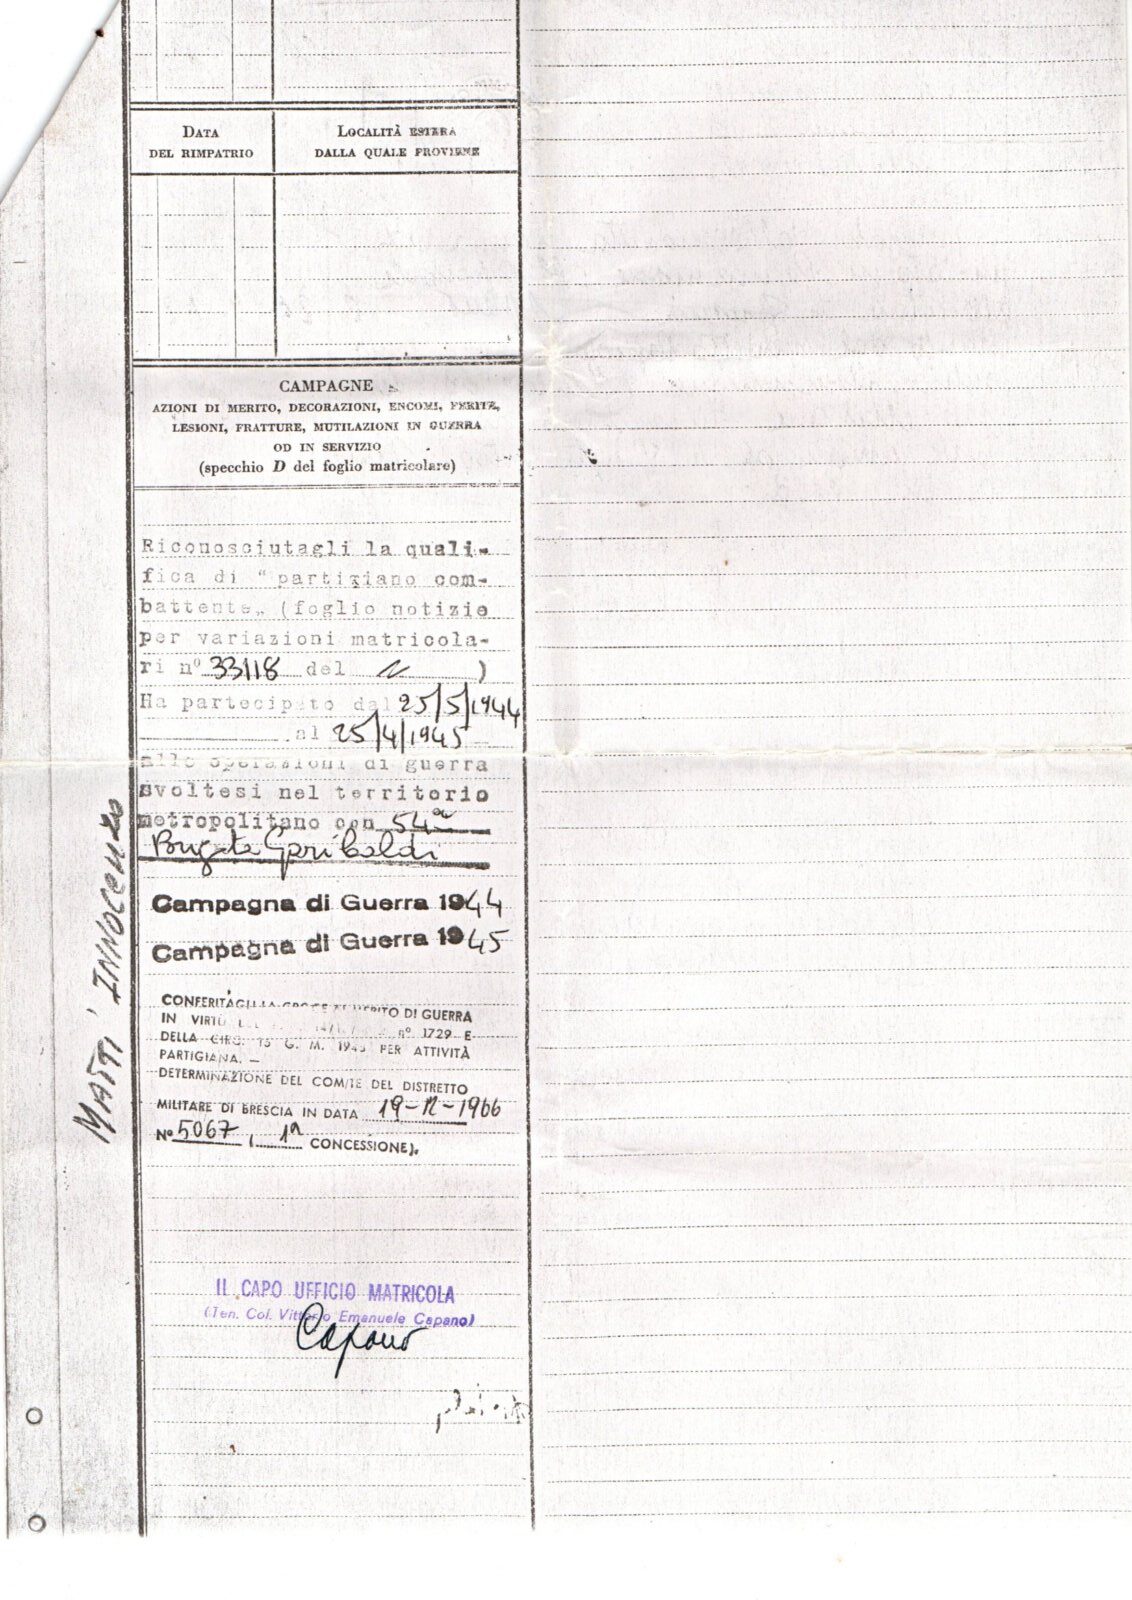 DATA
DEL RIMPATRIO
LOCALITÀ ESTERA
DALLA QUALE PROVIENE
CAMPAGNE
AZIONI DI MERITO, DECORAZIONI, ENCOMI, FERITE,
LESIONI, FRATTURE, MUTILAZIONI IN GUERRA
OD IN SERVIZIO
(specchio D del foglio matricolare)
Riconosciutagli la quali-
fica di "partigiano com-
battente„ (foglio notizie
per variazioni matricola-
ri n° 33118 del // )
Ha partecipato dal 25/5/1944
al 25/4/1945
alle operazioni di guerra
svoltesi nel territorio
metropolitano con 54a
Brigata Garibaldi
Campagna di Guerra 1944
Campagna di Guerra 1945
CONFERITAGLI LA CROCE AL MERITO DI GUERRA
IN VIRTÙ n° 1729 E
DELLA CIRC. G. M. PER ATTIVITÀ
PARTIGIANA. —
DETERMINAZIONE DEL COM/TE DEL DISTRETTO
MILITARE DI BRESCIA IN DATA 19-12-1966
N° 5067 , 1a CONCESSIONE).
IL CAPO UFFICIO MATRICOLA
(Ten. Col. Vittorio Emanuele Capano)
Capano
MATTI' INNOCENZO